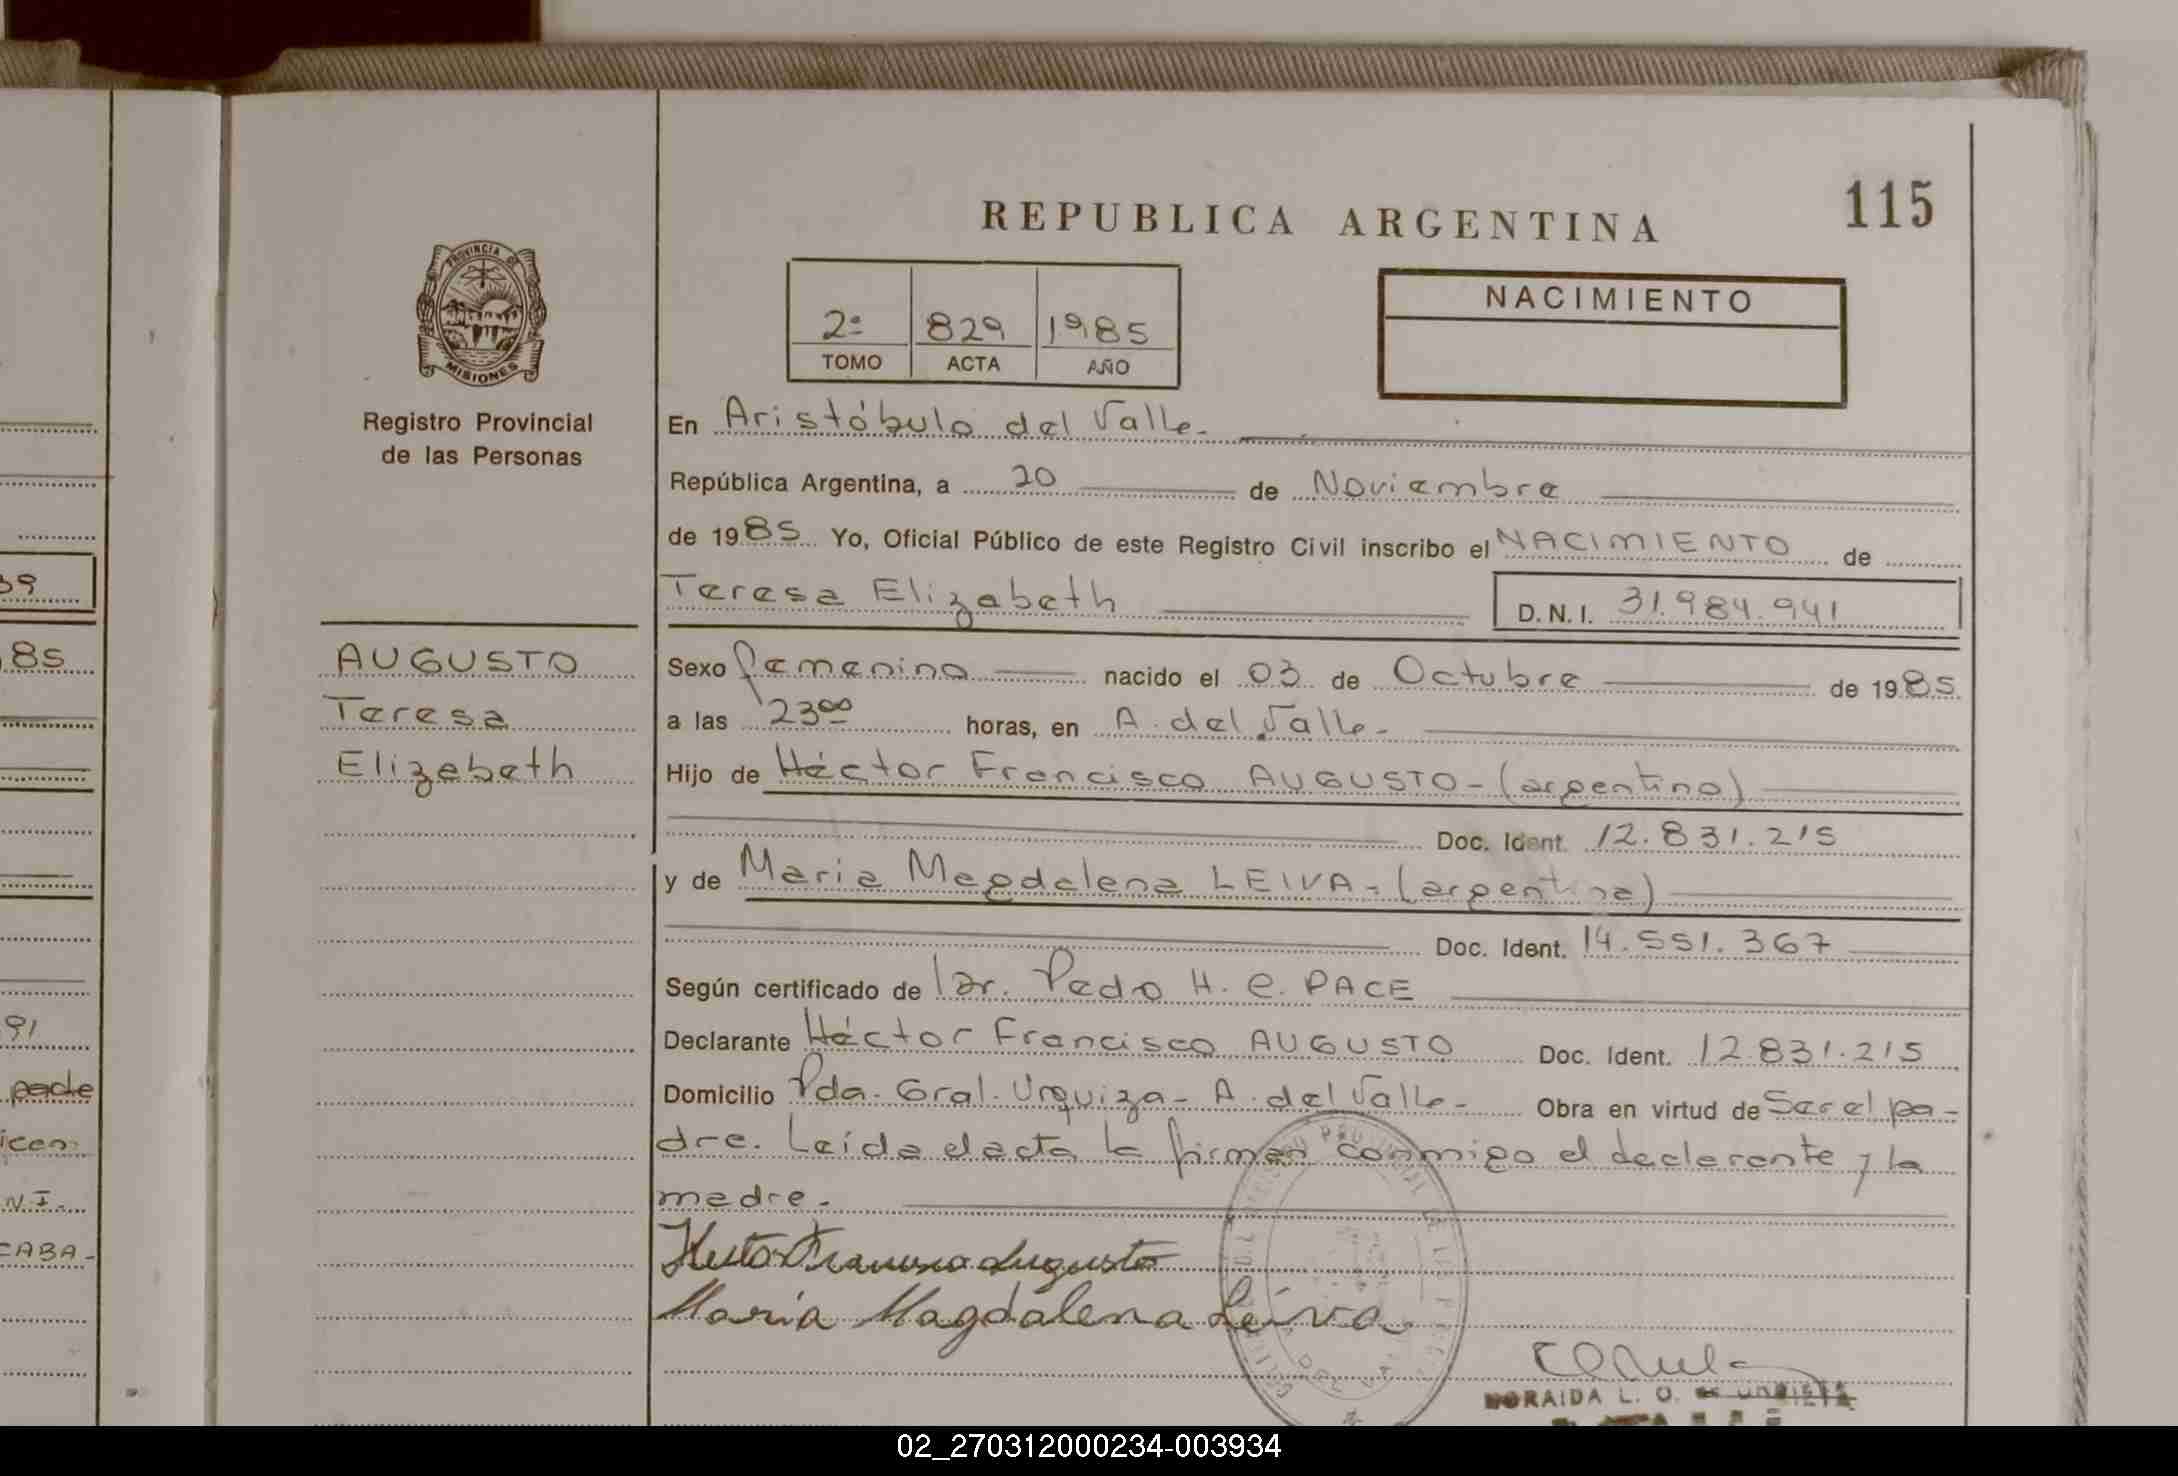 115
REPUBLICA ARGENTINA
PROVINCIA DE
MISIONES
Registro Provincial
de las Personas
2º 829 1985
TOMO ACTA AÑO
NACIMIENTO
En Aristóbulo del Valle.-
República Argentina, a 20 de Noviembre
de 1985 Yo, Oficial Público de este Registro Civil inscribo el NACIMIENTO de
Teresa Elizabeth D.N.I. 31.984.941
AUGUSTO
Teresa
Elizabeth
Sexo femenino nacido el 03 de Octubre de 1985
a las 23⁰⁰ horas, en A. del Valle.-
Hijo de Héctor Francisco AUGUSTO - (argentino)
Doc. Ident. 12.831.215
y de Maria Magdalena LEIVA - (argentina)
Doc. Ident. 14.551.367
Según certificado de Dr. Pedro H. C. PACE
Declarante Héctor Francisco AUGUSTO Doc. Ident. 12.831.215
Domicilio Pda. Gral. Urquiza - A. del Valle - Obra en virtud de Ser el pa-
dre. Leída el acta la firman conmigo el declarante y la
madre.-
Hector Francisco Augusto
María Magdalena Leiva
NORAIDA L. O. de
39
85
91
padre
N.I.-
CABA-
02_270312000234-003934